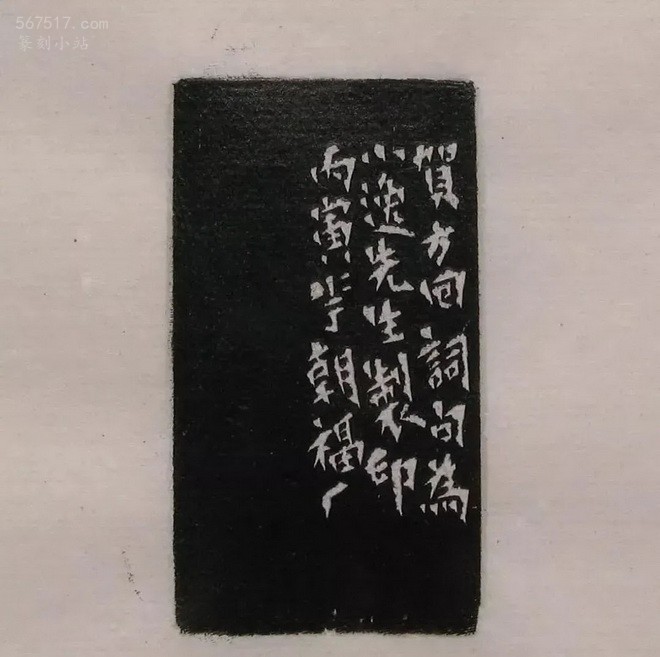 567517.com
篆刻小站
賀方回詞句為
小逸先生製印
丙寅学朝福